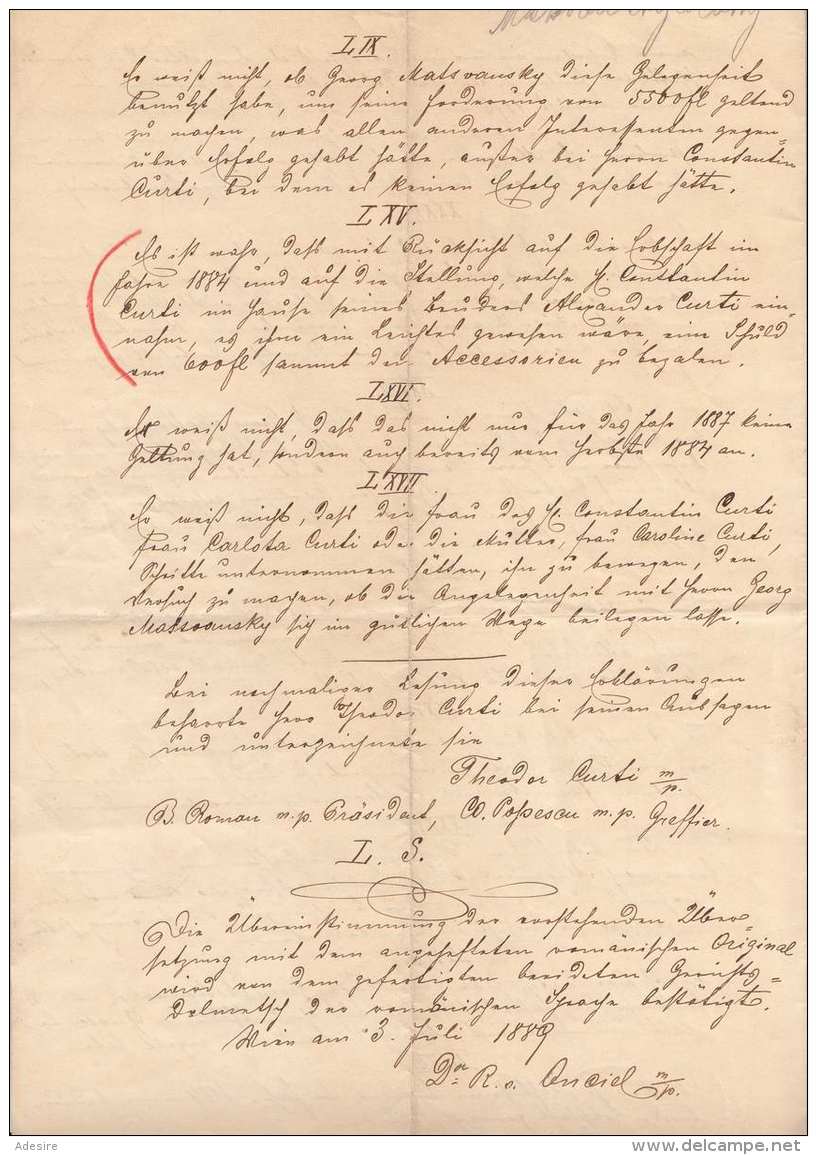 LIX
Er weiß nicht, ob Georg Matsvansky diese Gelegenheit
benutzt habe, um seine Forderung von 5500fl geltend
zu machen, was allen anderen Interessenten gegen=
über Erfolg gehabt hätte, außer bei Herrn Constantin
Curti, bei dem es keinen Erfolg gehabt hätte.
LXV.
Es ist wahr, dass mit Rücksicht auf die Erbschaft im
Jahre 1884 und auf die Stellung, welche H. Constantin
Curti im Hause seines Bruders Alexander Curti ein=
nahm, es ihm ein Leichtes gewesen wäre, eine Schuld
von 600fl sammt den Accessorien zu bezalen.
LXVI.
Er weiß nicht, dass das nicht nur für das Jahr 1887 keine
Geltung hat, sondern auch bereits vom Herbste 1884 an.
LXVII
Er weiß nicht, dass die Frau des H. Constantin Curti
Frau Carlota Curti oder die Mutter, Frau Caroline Curti,
Schritte unternommen hätten, ihn zu bewegen, den
Versuch zu machen, ob die Angelegenheit mit Herrn Georg
Matsvansky sich im gütlichen Wege beilegen lasse.
Bei nochmaliger Lesung dieser Erklärungen
beharrte Herr Theodor Curti bei seinen Aussagen
und unterzeichnete sie
Theodor Curti m/p.
B. Roman m.p. Präsident, Popescu m.p. Greffier.
L. S.
Die Übereinstimmung der vorstehenden Über=
setzung mit dem angehefteten romänischen Original
wird von dem gefertigten beeideten Gerichts=
Dolmetsch der romänischen Sprache bestätigt.
Wien am 3. Juli 1889
Dor R. v. Onciul m/p.
Adesire
delcampe.net